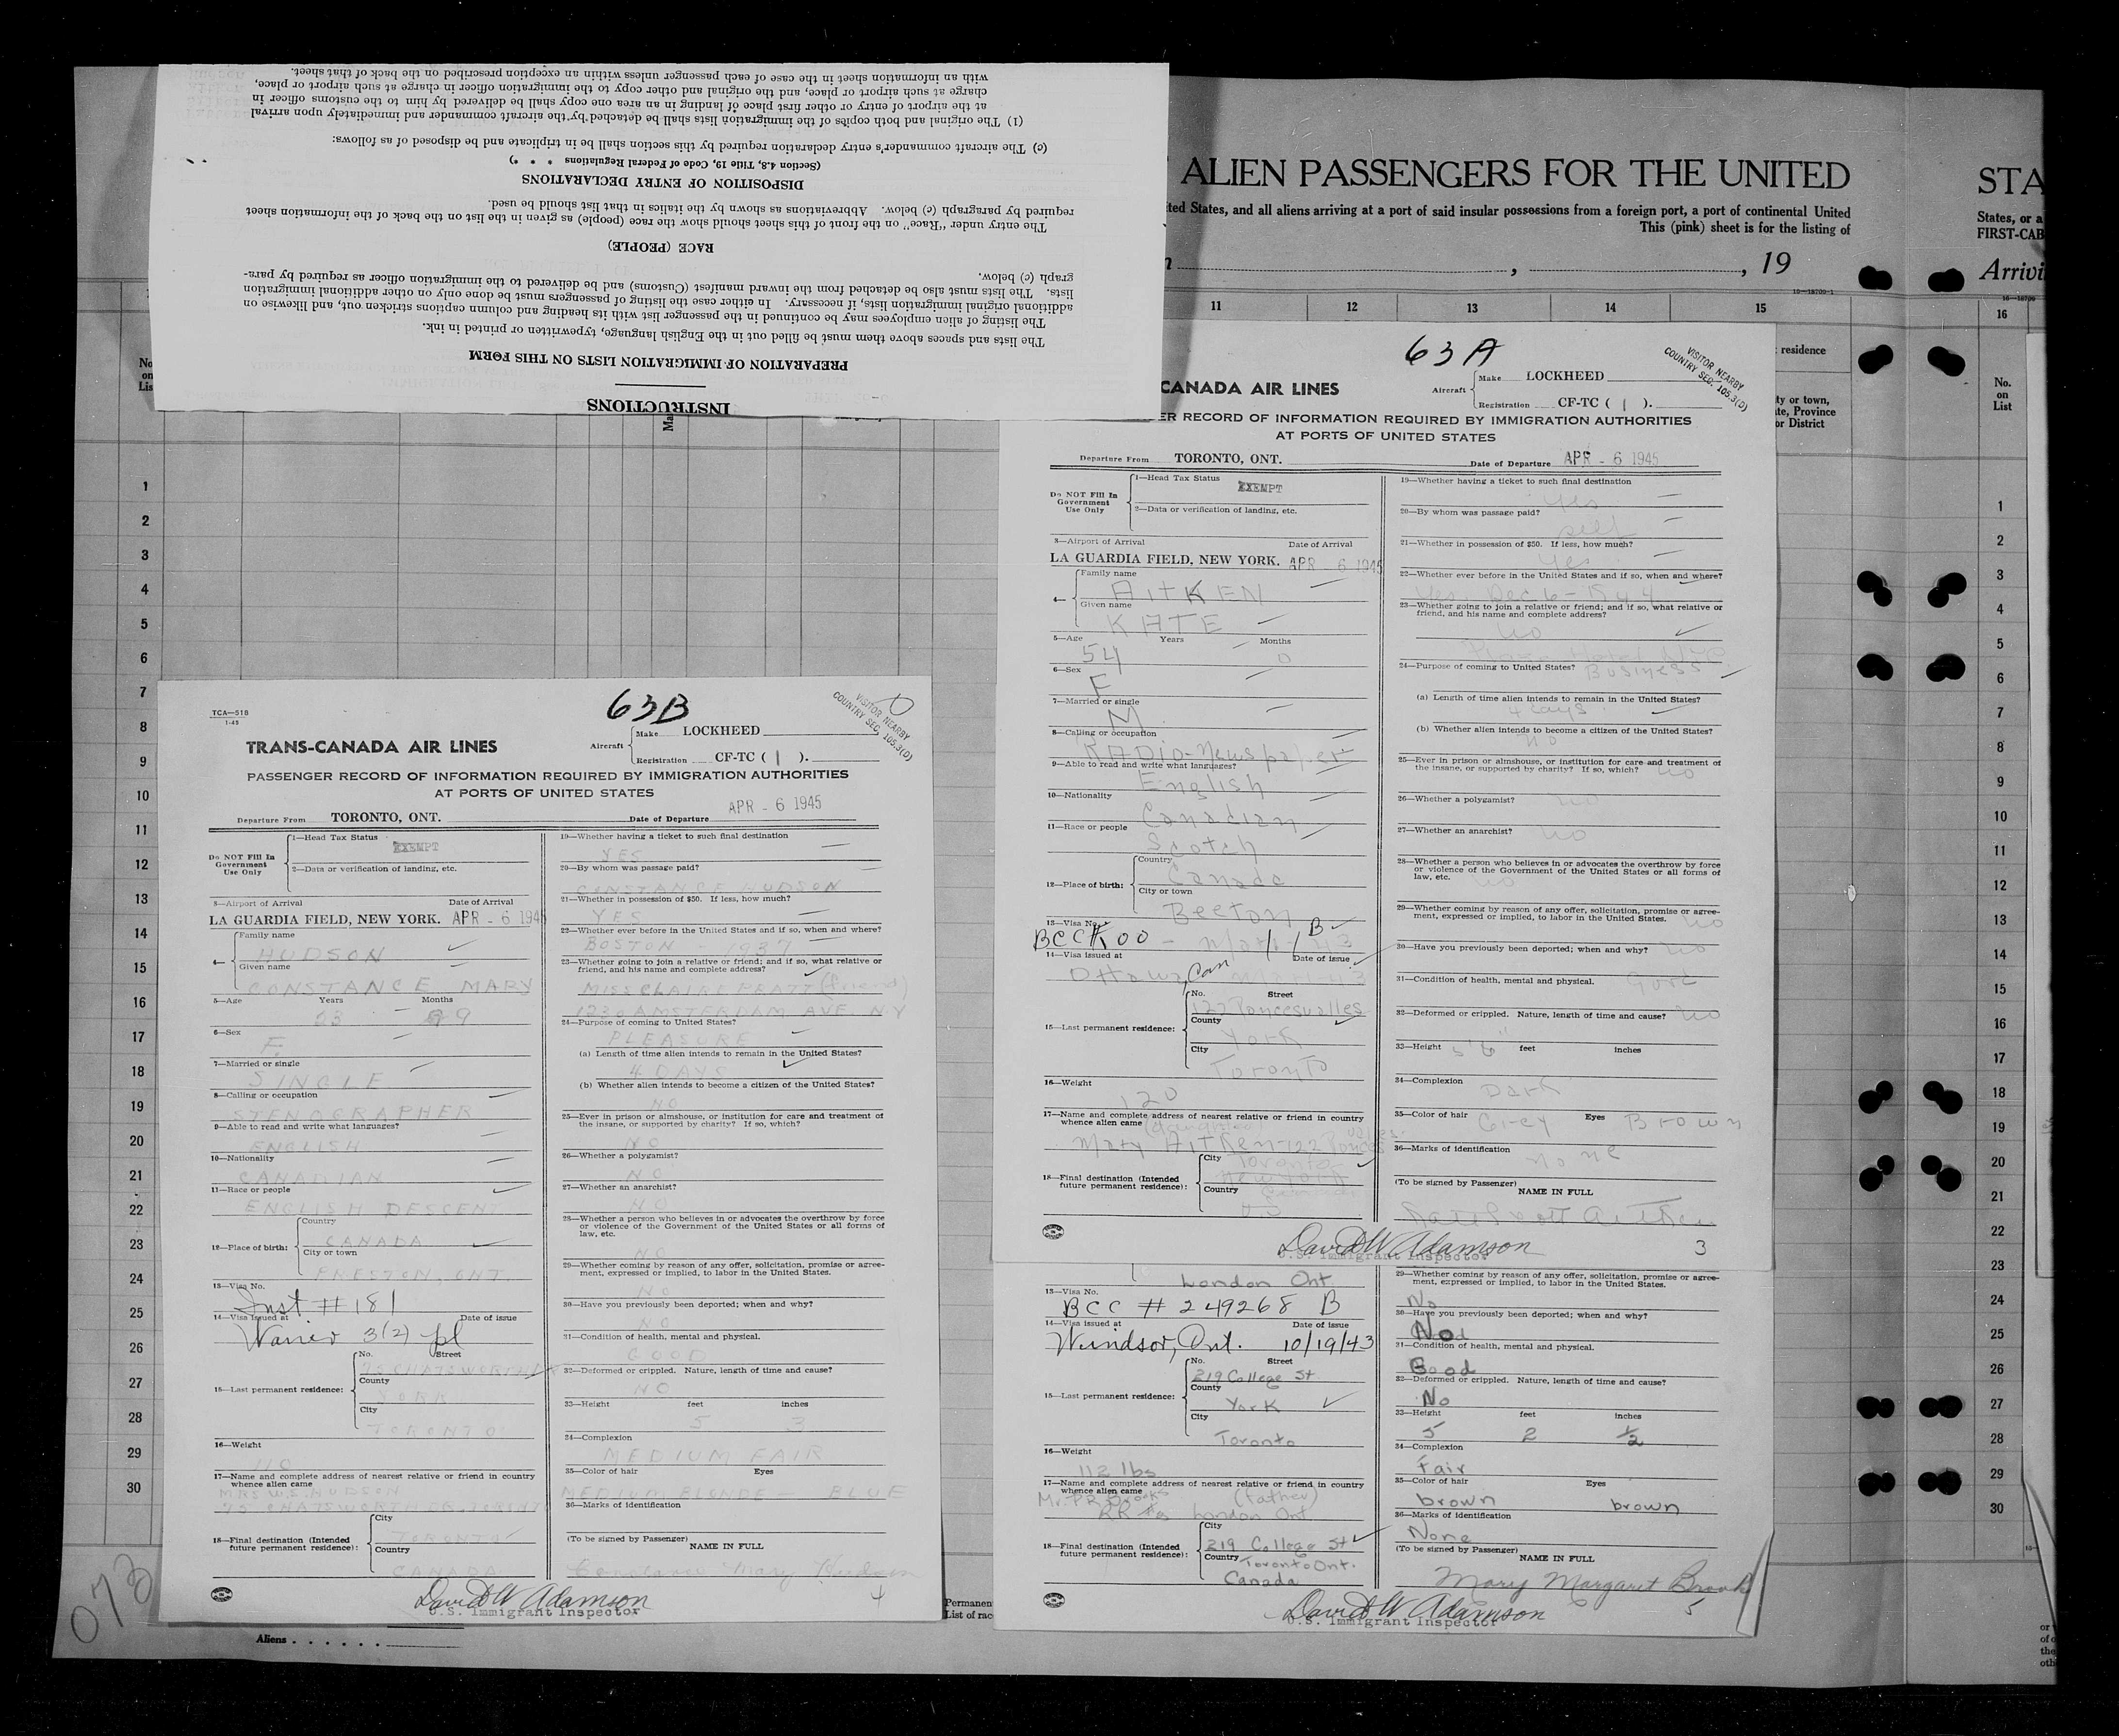 INSTRUCTIONS
PREPARATION OF IMMIGRATION LISTS ON THIS FORM
The lists and spaces above them must be filled out in the English language, typewritten or printed in ink.
The listing of alien employees may be continued in the passenger list with its heading and column captions stricken out, and likewise on
additional original immigration lists, if necessary. In either case the listing of passengers must be done only on other additional immigration
lists. The lists must also be detached from the inward manifest (Customs) and be delivered to the immigration officer as required by para-
graph (c) below.
RACE (PEOPLE)
The entry under "Race" on the front of this sheet should show the race (people) as given in the list on the back of the information sheet
required by paragraph (c) below. Abbreviations as shown by the italics in that list should be used.
DISPOSITION OF ENTRY DECLARATIONS
(Section 4.8, Title 19, Code of Federal Regulations * * *)
(c) The aircraft commander's entry declaration required by this section shall be in triplicate and be disposed of as follows:
(1) The original and both copies of the immigration lists shall be detached by the aircraft commander and immediately upon arrival
at the airport of entry or other first place of landing in an area one copy shall be delivered by him to the customs officer in
charge at such airport or place, and the original and other copy to the immigration officer in charge at such airport or place,
with an information sheet in the case of each passenger unless within an exception prescribed on the back of that sheet.
ALIEN PASSENGERS FOR THE UNITED
STA
ted States, and all aliens arriving at a port of said insular possessions from a foreign port, a port of continental United
This (pink) sheet is for the listing of
States, or a
FIRST-CAB
, 19
Arrivi
11 12 13 14 15 16
residence
ty or town,
te, Province
or District
No.
on
List
1
2
3
4
5
6
7
8
9
10
11
12
13
14
15
16
17
18
19
20
21
22
23
24
25
26
27
28
29
30
63A
VISITOR NEARBY
COUNTRY SEC. 105.3(D)
CANADA AIR LINES
Aircraft Make LOCKHEED
Registration CF-TC ( 1 ).
ER RECORD OF INFORMATION REQUIRED BY IMMIGRATION AUTHORITIES
AT PORTS OF UNITED STATES
Departure From TORONTO, ONT. Date of Departure APR - 6 1945
Do NOT Fill In
Government
Use Only
1—Head Tax Status
EXEMPT
2—Data or verification of landing, etc.
3—Airport of Arrival Date of Arrival
LA GUARDIA FIELD, NEW YORK. APR - 6 1945
4— Family name
AITKEN
Given name
KATE
5—Age Years Months
54 0
6—Sex
F
7—Married or single
M
8—Calling or occupation
RADIO-Newspaper
9—Able to read and write what languages?
English
10—Nationality
Canadian
11—Race or people
Scotch
12—Place of birth: Country
Canada
City or town
Beeton
13—Visa No.
14—Visa issued at Date of issue
Ottawa, Can
15—Last permanent residence: No. Street
County
York
City
Toronto
16—Weight
120
17—Name and complete address of nearest relative or friend in country
whence alien came
Mary Aitken-122
18—Final destination (Intended
future permanent residence): City
Toronto
Country
19—Whether having a ticket to such final destination
Yes
20—By whom was passage paid?
self
21—Whether in possession of $50. If less, how much?
Yes
22—Whether ever before in the United States and if so, when and where?
Yes. Dec 6-1944
23—Whether going to join a relative or friend; and if so, what relative or
friend, and his name and complete address?
No
24—Purpose of coming to United States? BUSINESS
(a) Length of time alien intends to remain in the United States?
4 days
(b) Whether alien intends to become a citizen of the United States?
no
25—Ever in prison or almshouse, or institution for care and treatment of
the insane, or supported by charity? If so, which? no
26—Whether a polygamist? no
27—Whether an anarchist? no
28—Whether a person who believes in or advocates the overthrow by force
or violence of the Government of the United States or all forms of
law, etc. no
29—Whether coming by reason of any offer, solicitation, promise or agree-
ment, expressed or implied, to labor in the United States. no
30—Have you previously been deported; when and why? no
31—Condition of health, mental and physical. Good
32—Deformed or crippled. Nature, length of time and cause? no
33—Height 5'6" feet inches
34—Complexion
Dark
35—Color of hair Eyes
Grey Brown
36—Marks of identification
none
(To be signed by Passenger)
NAME IN FULL
David W Adamson
U.S. Immigrant Inspector
3
TCA—518
1-45
63B
VISITOR NEARBY
COUNTRY SEC. 105.3(D)
TRANS-CANADA AIR LINES
Aircraft Make LOCKHEED
Registration CF-TC ( 1 ).
PASSENGER RECORD OF INFORMATION REQUIRED BY IMMIGRATION AUTHORITIES
AT PORTS OF UNITED STATES
Departure From TORONTO, ONT. Date of Departure APR - 6 1945
Do NOT Fill In
Government
Use Only
1—Head Tax Status
EXEMPT
2—Data or verification of landing, etc.
3—Airport of Arrival Date of Arrival
LA GUARDIA FIELD, NEW YORK. APR - 6 1945
4— Family name
HUDSON
Given name
CONSTANCE MARY
5—Age Years Months
23 9
6—Sex
F.
7—Married or single
SINGLE
8—Calling or occupation
STENOGRAPHER
9—Able to read and write what languages?
ENGLISH
10—Nationality
CANADIAN
11—Race or people
ENGLISH DESCENT
12—Place of birth: Country
CANADA
City or town
PRESTON, ONT
13—Visa No.
Inst # 181
14—Visa issued at Date of issue
15—Last permanent residence: No. Street
75 CHATSWORTH
County
YORK
City
TORONTO
16—Weight
110
17—Name and complete address of nearest relative or friend in country
whence alien came
MRS W.S. HUDSON
75 CHATSWORTH DR. TORONTO
18—Final destination (Intended
future permanent residence): City
TORONTO
Country
CANADA
19—Whether having a ticket to such final destination
YES
20—By whom was passage paid?
CONSTANCE HUDSON
21—Whether in possession of $50. If less, how much?
YES
22—Whether ever before in the United States and if so, when and where?
BOSTON 1937
23—Whether going to join a relative or friend; and if so, what relative or
friend, and his name and complete address?
MISS CLAIRE PRATT (friend)
1230 AMSTERDAM AVE N.Y
24—Purpose of coming to United States?
PLEASURE
(a) Length of time alien intends to remain in the United States?
4 DAYS
(b) Whether alien intends to become a citizen of the United States?
NO
25—Ever in prison or almshouse, or institution for care and treatment of
the insane, or supported by charity? If so, which?
NO
26—Whether a polygamist?
NO
27—Whether an anarchist?
NO
28—Whether a person who believes in or advocates the overthrow by force
or violence of the Government of the United States or all forms of
law, etc.
NO
29—Whether coming by reason of any offer, solicitation, promise or agree-
ment, expressed or implied, to labor in the United States.
NO
30—Have you previously been deported; when and why?
NO
31—Condition of health, mental and physical.
GOOD
32—Deformed or crippled. Nature, length of time and cause?
NO
33—Height feet inches
5 3
34—Complexion
MEDIUM FAIR
35—Color of hair Eyes
MEDIUM BLONDE — BLUE
36—Marks of identification
(To be signed by Passenger)
NAME IN FULL
Constance Mary Hudson
David W Adamson
U.S. Immigrant Inspector
4
London Ont
13—Visa No.
BCC # 249268 B
14—Visa issued at Date of issue
Windsor, Ont. 10/19/43
15—Last permanent residence: No. Street
219 College St
County
York
City
Toronto
16—Weight
112 lbs
17—Name and complete address of nearest relative or friend in country
whence alien came
Mr. P R Brooks (father)
London Ont
18—Final destination (Intended
future permanent residence): City
219 College St
Country Toronto Ont.
Canada
29—Whether coming by reason of any offer, solicitation, promise or agree-
ment, expressed or implied, to labor in the United States.
No
30—Have you previously been deported; when and why?
No
31—Condition of health, mental and physical.
Good
32—Deformed or crippled. Nature, length of time and cause?
No
33—Height feet inches
5 2 ½
34—Complexion
Fair
35—Color of hair Eyes
brown brown
36—Marks of identification
None
(To be signed by Passenger)
NAME IN FULL
Mary Margaret Brooks
David W Adamson
U.S. Immigrant Inspector
5
073
Aliens
Permanen
List of rac